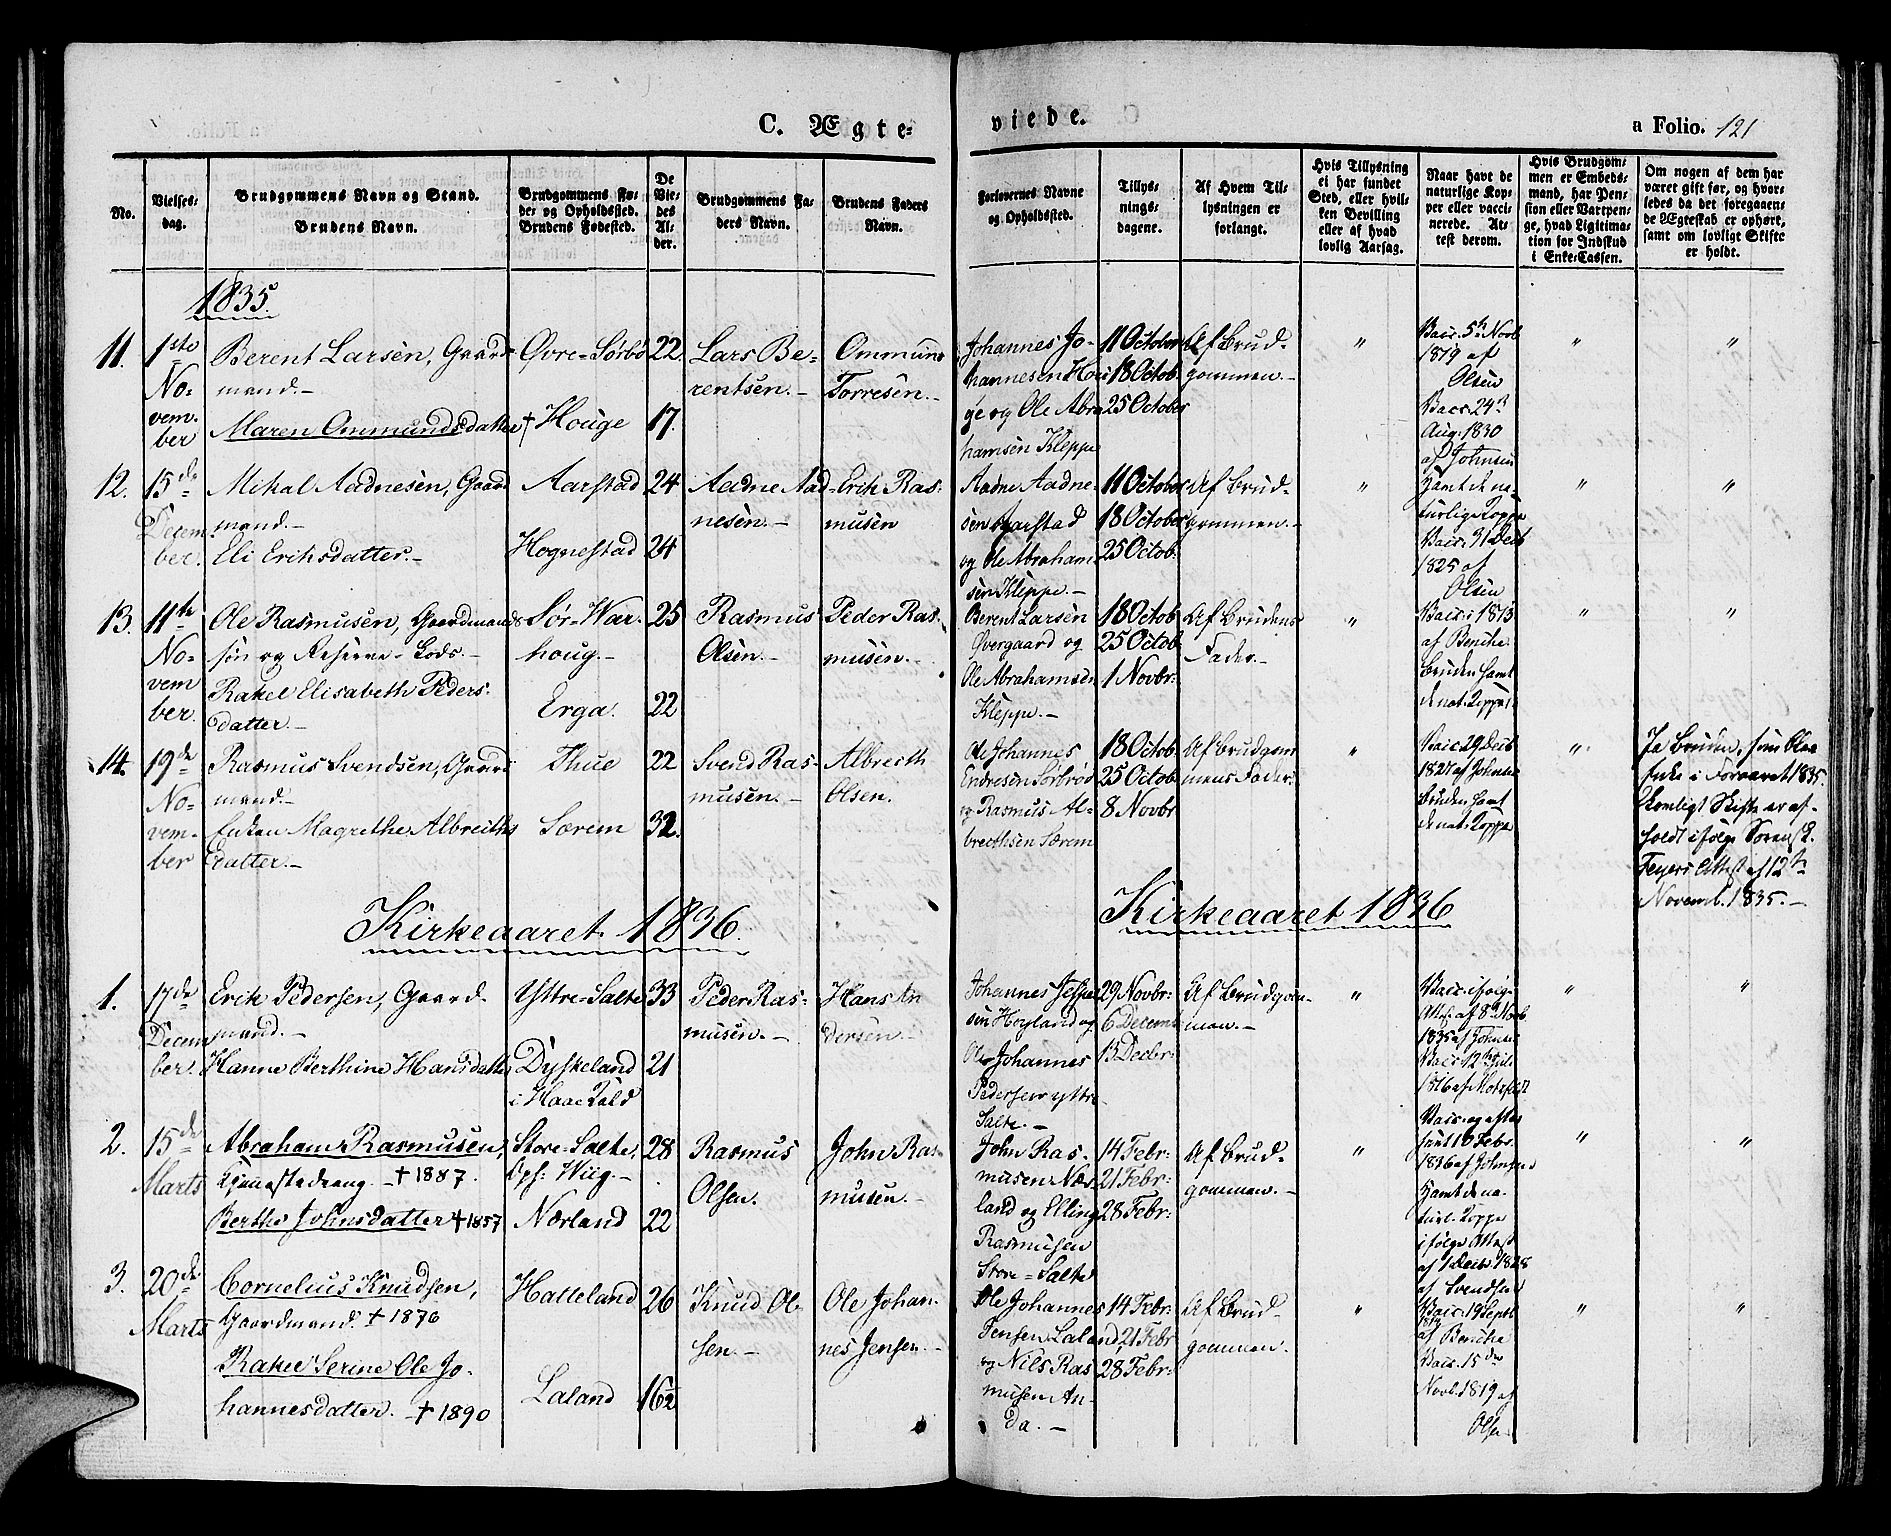 C. Ægte-
viede.
a Folio. 121
No.
Vielses-
dag.
Brudgommens Navn og Stand.
Brudens Navn.
Brudgommens Fø-
de- og Opholdssted.
Brudens Fødested.
De
Vie-
des
Al-
der.
Brudgommens Fa-
ders Navn.
Brudens Faders
Navn.
Forlovernes Navne
og Opholdsted.
Tillys-
nings-
dagene.
Af Hvem Til-
lysningen er
forlangt.
Hvis Tillysning
ei har fundet
Sted, eller hvil-
ken Bevilling
eller af hvad
lovlig Aarsag.
Naar havt de
naturlige Kop-
per eller vacci-
nerede. At-
test derom.
Hvis Brudgom-
men er Embeds-
mand, har Pen-
sion eller Vartpen-
ge, hvad Ligitima-
tion for Indskud
i Enke-Cassen.
Om nogen af dem har
været gift før, og hvor-
ledes da det foregaaen-
de Ægteskab er ophørt,
samt om lovligt Skifte
er holdt.
1835.
11.
1ste
No-
vem-
ber
Berent Larsen, Gaard-
mand.-
Maren Ommundsdatter
Øvre-Sørbø
+ Houge
22
17.
Lars Be-
rentsen.-
Ommund
Torresen.-
Johannes Jo-
hannesen Hou-
ge og Ole Abra-
hamsen Kleppe
11 October
18 Octob.
25 October
Af Brud-
gommen.-
"
Vacc. 5te Novb
1819 af
Olsen
Vacc. 24de
Aug. 1830
af Johnsen
"
"
12.
15de
Decem-
ber.
Mikal Aadnesen, Gaard
mand.-
Eli Eriksdatter.-
Aarstad
Hognestad
24
24
Aadne Aad-
nesen.-
Erik Ras-
musen
Aadne Aadne-
sen Aarstad
og Ole Abraham-
sen Kleppe.-
11 October
18 October
25 Octob.
Af Brud-
gommen.-
"
Havt de na-
turlige Kopper
Vacc. 31 Decb
1825 af
Olsen
"
"
13.
11te
No-
vem
ber.
Ole Rasmusen, Gaardmands
søn og Reserve-Gods.-
Rakel Elisabeth Peders-
datter.-
Sør-War-
houg.-
Erga.
25
22
Rasmus
Olsen.-
Peder Ras-
musen.-
Berent Larsen
Øvergaard og
Ole Abrahamsen
Kleppe.-
18 Octob
25 Octob
1 Novbr:
Af Brudens
Fader.-
"
Vacc. i 1813
af Bencke
Bruden havt
de nat. Kopper.
"
"
14.
19de
No-
vem-
ber
Rasmus Svendsen, Gaard
mand.-
Enken Magrethe Albreiths
datter.-
Thue
Særem
22
32.
Svend Ras-
musen.-
Albreith
Olsen.
Ole Johannes
Endresen Sørbrød
og Rasmus Al-
breithsen Særem
18 Octob
25 Octob
8 Novbr
Af Brudgom
mens Fader.
"
Vacc. 29 Decb
1827 af Johnsen
Bruden havt
de nat. Kopper
"
Ja Bruden, som blev
Enke i Foraaret 1835.
Lovligt Skifte er af-
holdt ifølge Sorensk.
Feyers Attest af 12te
Novemb. 1835.-
Kirkeaaret 1836.
Kirkeaaret 1836
1.
17de
Decem
ber.
Erik Pedersen, Gaard-
mand.-
Hanne Berthine Hansdatter
Yttre-Salte
Dyskeland
i Haae Kald
33
21
Peder Ras-
musen.-
Hans An
dersen.-
Johannes Jesper
sen Høyland og
Ole Johannes
Pedersen Yttre
Salte.-
29 Novbr:
6 Decemb
13 Decbr:
Af Brudgom-
men.-
"
Vacc. ifølge
Attest af 8de Novb
1835 af Johnsen
Vacc. 12te
1816 af
"
"
2.
15de
Marts
Abraham Rasmusen,
+ 1887.
Berthe Johnsdatter + 1857
Store-Salte,
Oph: Wiig.-
Nærland
28
22
Rasmus
Olsen.
John Ras-
musen.-
John Ras-
musen Nær-
land og Elling
Rasmusen
Store-Salte
14 Febr:
21 Febr:
28 Febr:
Af Brud-
gommen.-
"
Vacc. og attes
10 Febr.
1836 af Johnsen
Havt de na-
turl. Kopper
ifølge Attest
af 1 Decbr 1828
af Svendsen
"
"
3.
20de
Marts
Cornelius Knudsen,
Gaardmand. + 1876
Rakel Serine Ole Jo-
hannesdatter. - + 1890
Hatteland
Laland
26
16½
Knud Ol-
sen.-
Ole Johan-
nes Jensen.-
Ole Johannes
Jensen Laland
og Nils Ras
musen An-
da.-
14 Febr:
21 Febr
28 Febr:
Af Brud-
gommen.
"
Vacc. 19 Septb
1813
af Bencke
Vacc. 15de
Novb. 1819 af
Olsen
"
"